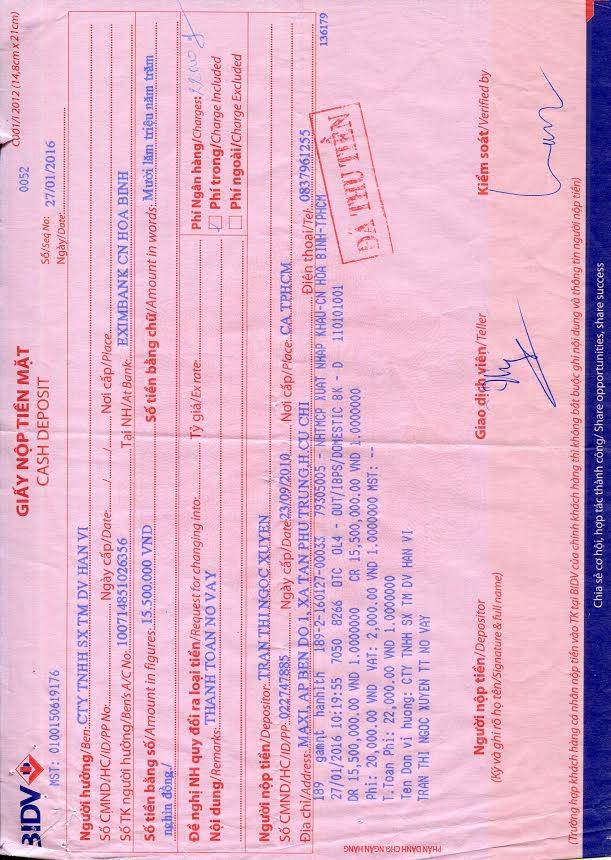 BIDV
MST: 0100150619176
GIẤY NỘP TIỀN MẶT
CASH DEPOSIT
C001/I 2012 (14,8cm x 21cm)
0052
Số/Seq No:
Ngày/Date: 27/01/2016
Người hưởng/Ben: CTY TNHH SX TM DV HAN VI
Số CMND/HC/ID/PP No: Ngày cấp/Date: / / Nơi cấp/Place
Số TK người hưởng/Ben's A/C No: 100714851026356 Tại NH/At Bank: EXIMBANK CN HOA BINH
Số tiền bằng số/Amount in figures: 15.500.000 VND Số tiền bằng chữ/Amount in words: Mười lăm triệu năm trăm
nghìn đồng./
Đề nghị NH quy đổi ra loại tiền/Request for changing into: Tỷ giá/Ex rate:
Nội dung/Remarks: THANH TOAN NO VAY
Phí Ngân hàng/Charges: 22000 đ
Phí trong/Charge Included
Phí ngoài/Charge Excluded
Người nộp tiền/Depositor: TRAN THI NGOC XUYEN
Số CMND/HC/ID/PP: 022747885 Ngày cấp/Date: 23/09/2010 Nơi cấp/Place: CA TPHCM
Địa chỉ/Address: MAXI, AP BEN DO 1, XA TAN PHU TRUNG, H CU CHI Điện thoại/Tel: 0837961255
136179
189 gamnt hanhlth 189-2-160127-00033 79305005 - NHTMCP XUAT NHAP KHAU-CN HOA BINH-TPHCM
27/01/2016 10:19:55 7050 8266 OTC OL4 - OUT/IBPS/DOMESTIC BK - D 110101001
DR 15,500,000.00 VND 1.0000000 CR 15,500,000.00 VND 1.0000000
Phi: 20,000.00 VND VAT: 2,000.00 VND 1.0000000 MST: --
T.Toan Phi: 22,000.00 VND 1.0000000
Ten Don vi Huong: CTY TNHH SX TM DV HAN VI
TRAN THI NGOC XUYEN TT NO VAY
ĐÃ THU TIỀN
Người nộp tiền/Depositor
(Ký và ghi rõ họ tên/Signature & full name)
Giao dịch viên/Teller
Kiểm soát/Verified by
PHẦN DÀNH CHO NGÂN HÀNG
(Trường hợp khách hàng cá nhân nộp tiền vào TK tại BIDV của chính khách hàng thì không bắt buộc ghi nội dung và thông tin người nộp tiền)
Chia sẻ cơ hội, hợp tác thành công/ Share opportunities, share success